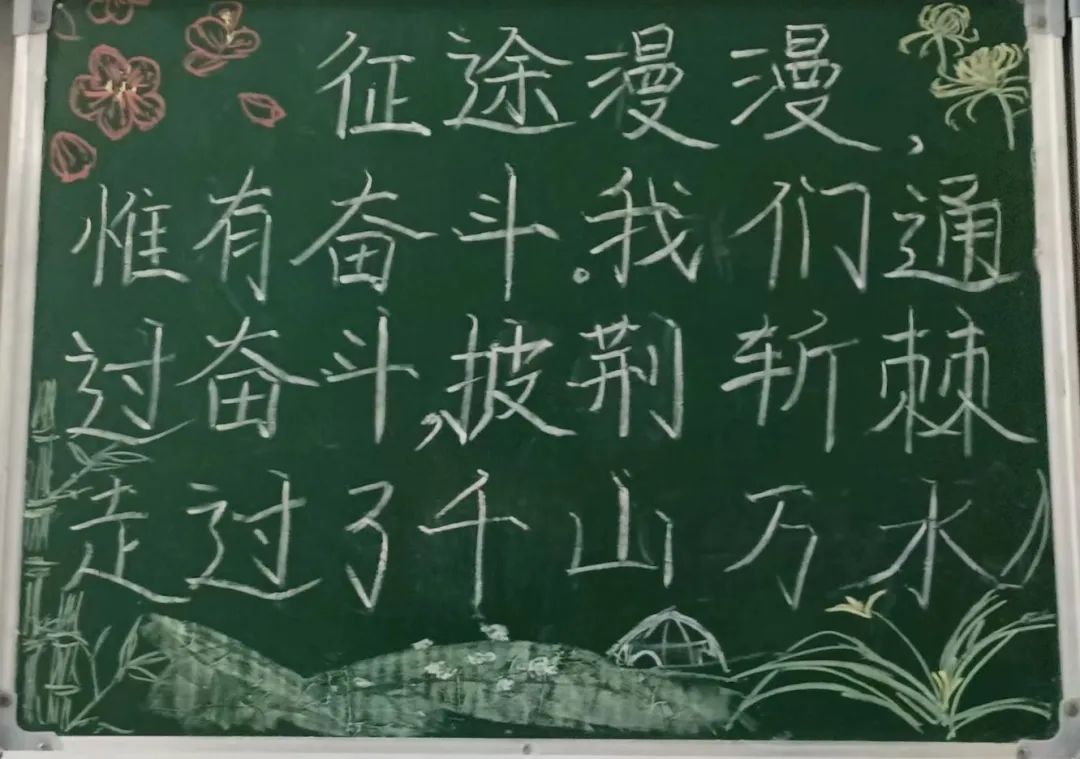 征途漫漫,
惟有奋斗。我们通
过奋斗,披荆斩棘
走过了千山万水